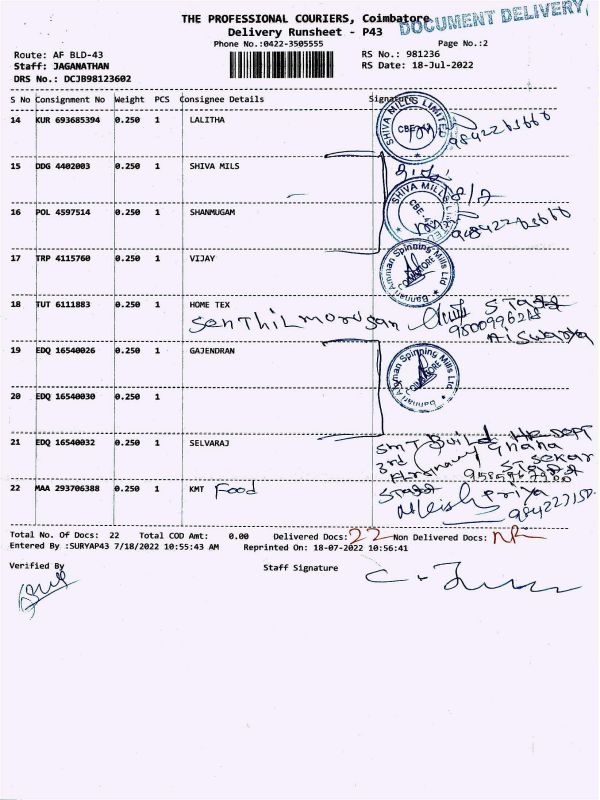 THE PROFESSIONAL COURIERS, Coimbatore
DOCUMENT DELIVERY
Delivery Runsheet - P43
Phone No.:0422-3505555
Page No.:2
Route: AF BLD-43
RS No.: 981236
Staff: JAGANATHAN
RS Date: 18-Jul-2022
DRS No.: DCJB98123602
S No Consignment No Weight PCS Consignee Details Signature
14 KUR 693685394 0.250 1 LALITHA
SHIVA MILLS LIMITED
CBE-43
15 DDG 4402003 0.250 1 SHIVA MILS
SHIVA MILLS LIMITED
CBE-43
16 POL 4597514 0.250 1 SHANMUGAM
17 TRP 4115760 0.250 1 VIJAY
Bannari Amman Spinning Mills Ltd
COIMBATORE
18 TUT 6111883 0.250 1 HOME TEX
Senthil morugan
Staff
Aiswarya
19 EDQ 16540026 0.250 1 GAJENDRAN
Bannari Amman Spinning Mills Ltd
COIMBATORE
20 EDQ 16540030 0.250 1
21 EDQ 16540032 0.250 1 SELVARAJ
SMT Build
3rd
Sekar
Staff
22 MAA 293706388 0.250 1 KMT Food
Staff
Total No. Of Docs: 22 Total COD Amt: 0.00 Delivered Docs: 22 Non Delivered Docs: NIL
Entered By :SURYAP43 7/18/2022 10:55:43 AM Reprinted On: 18-07-2022 10:56:41
Verified By
Staff Signature